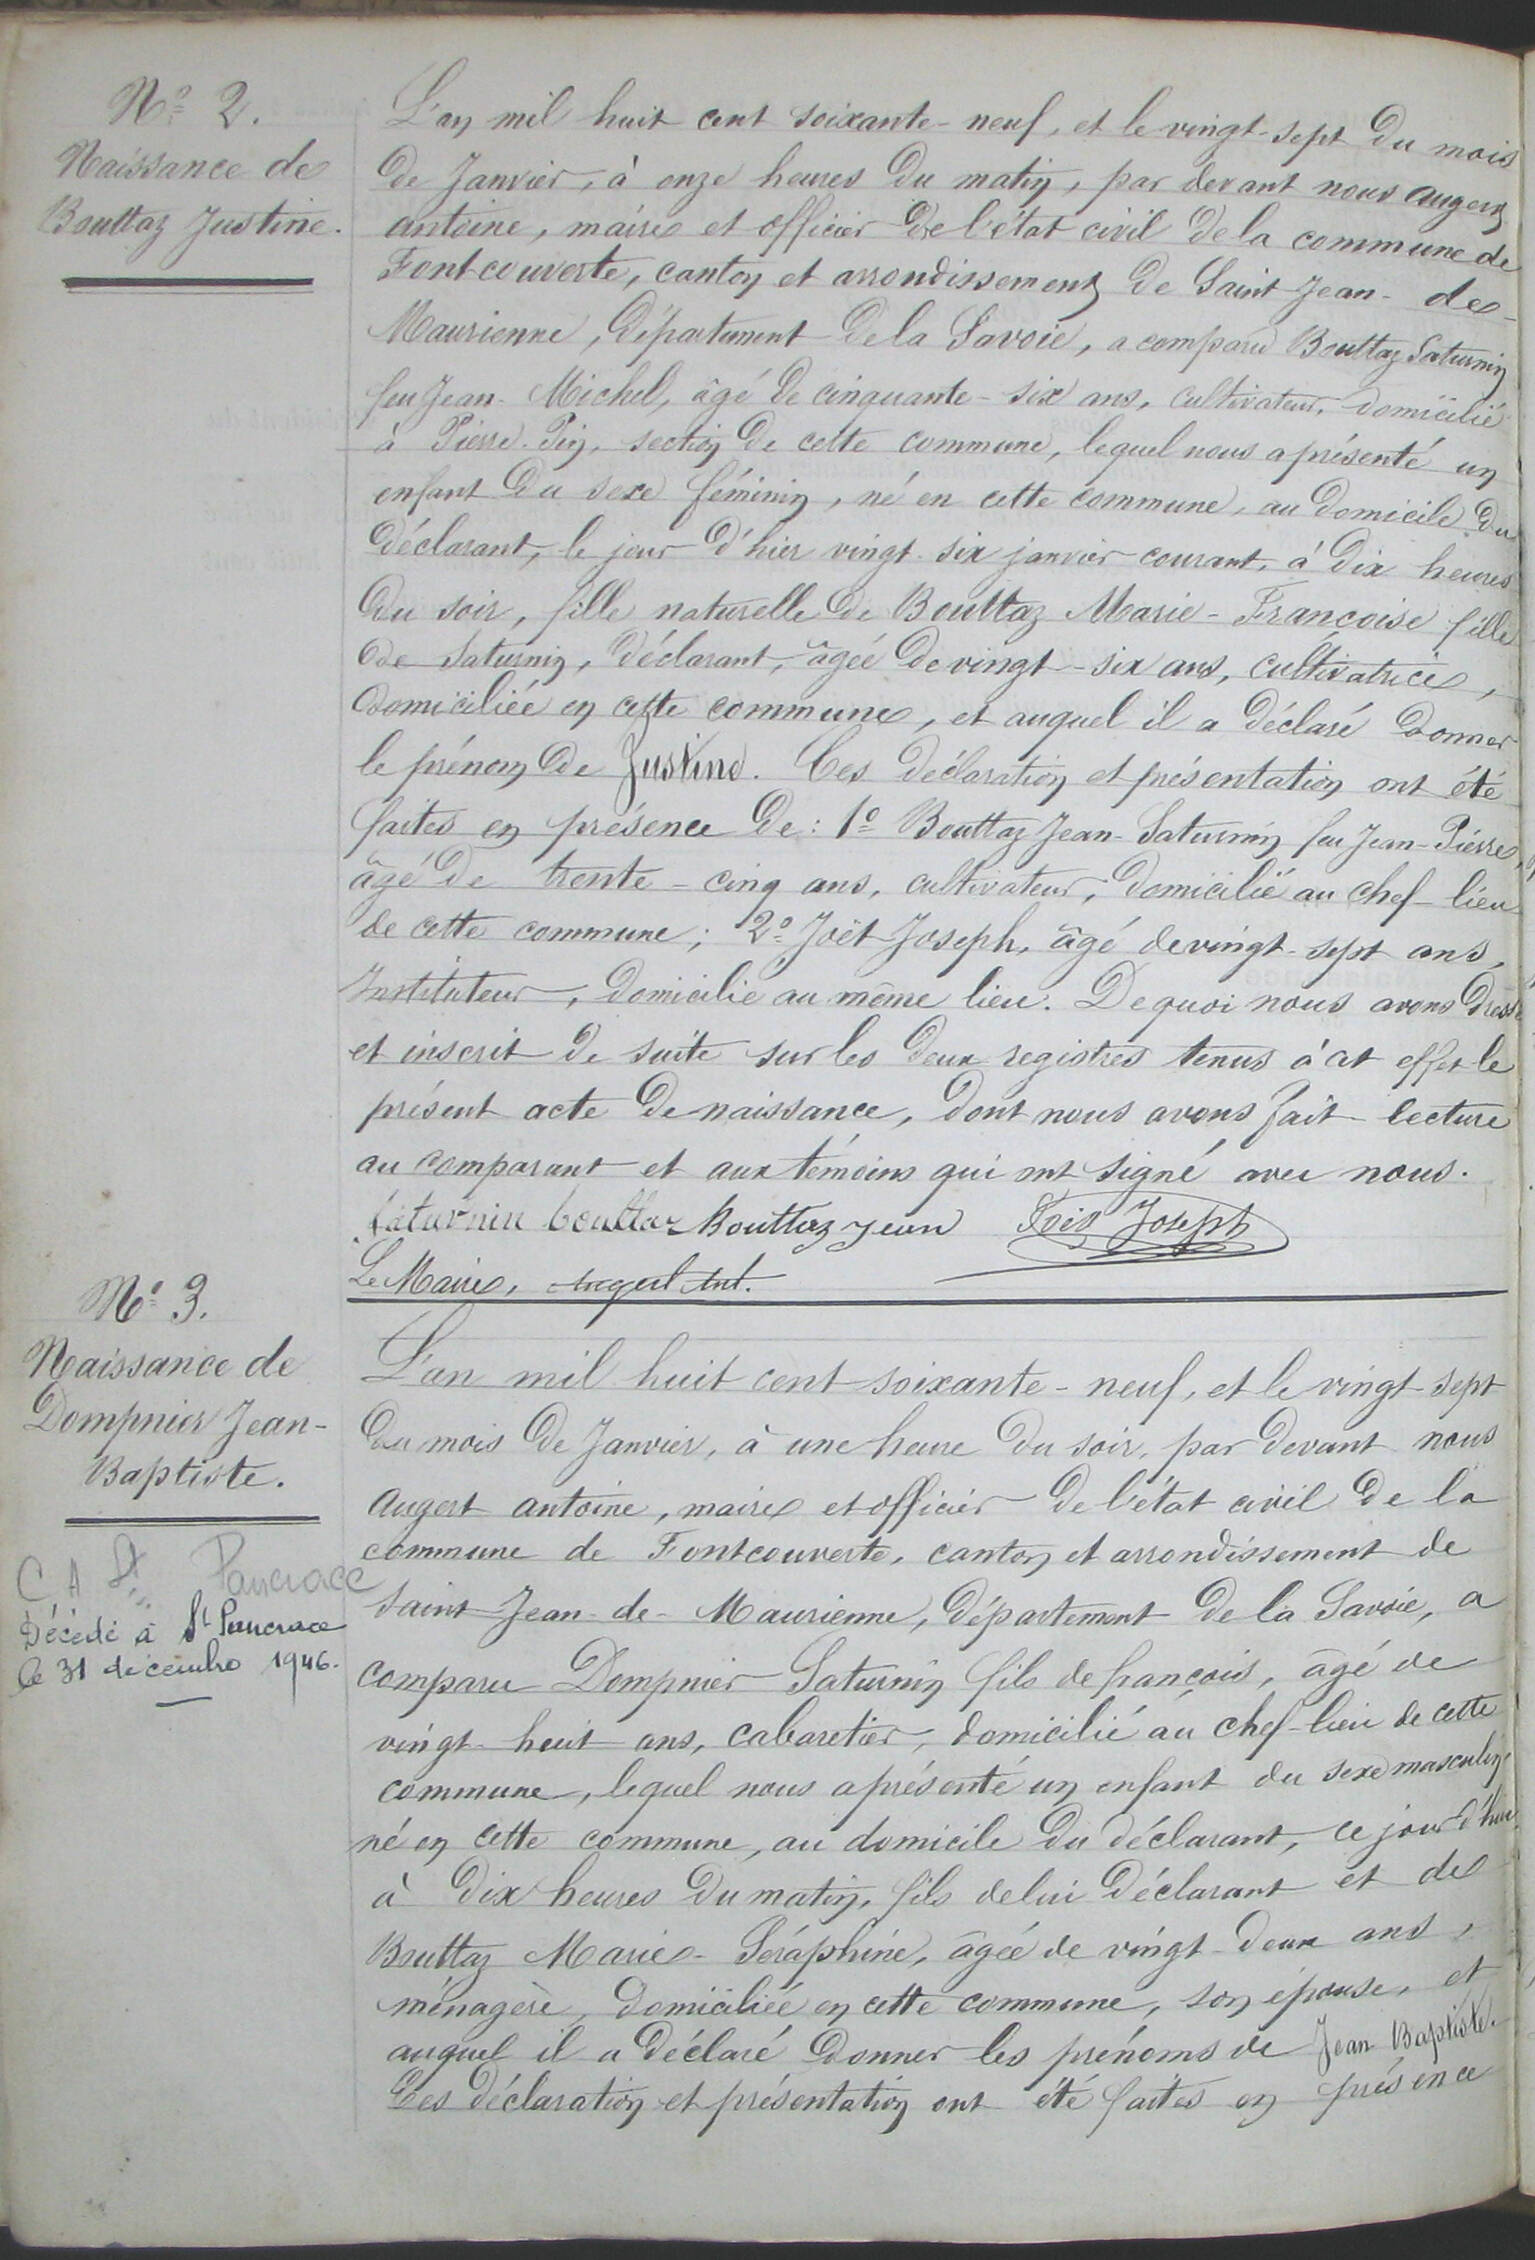 N° 2.
Naissance de
Bouttaz Justine.
L'an mil huit cent soixante-neuf, et le vingt-sept du mois
de Janvier, à onze heures du matin, par devant nous Augert
antoine, maire et officier de l'état civil de la commune de
Fontcouverte, canton et arrondissement de Saint Jean-de-
Maurienne, Département de la Savoie, a comparu Bouttaz Saturnin
feu Jean-Michel, âgé de cinquante-six ans, cultivateur, domicilié
à Pierre-Pin, section de cette commune, lequel nous a présenté un
enfant du sexe féminin, né en cette commune, au domicile du
déclarant, le jour d'hier vingt-six janvier courant, à dix heures
du soir, fille naturelle de Bouttaz Marie-Françoise fille
de Saturnin, déclarant, âgée de vingt-six ans, cultivatrice,
domiciliée en cette commune, et auquel il a déclaré donner
le prénom de Justine. Ces déclaration et présentation ont été
faites en présence de: 1° Bouttaz Jean-Saturnin feu Jean-Pierre,
âgé de trente-cinq ans, cultivateur, domicilié au chef-lieu
de cette commune; 2° Joët Joseph, âgé de vingt-sept ans,
Instituteur, domicilié au même lieu. De quoi nous avons dressé
et inscrit de suite sur les deux registres tenus à cet effet le
présent acte de naissance, dont nous avons fait lecture
au comparant et aux témoins qui ont signé avec nous.
Saturnin bouttaz Bouttaz Jean Joseph
Le Maire, augert ant.
N° 3.
Naissance de
Dompnier Jean-
Baptiste.
C A St Pancrace
Décédé à St Pancrace
le 31 décembre 1946.
L'an mil huit cent soixante-neuf, et le vingt-sept
du mois de Janvier, à une heure du soir, par devant nous
Augert antoine, maire et officier de l'état civil de la
commune de Fontcouverte, canton et arrondissement de
Saint Jean-de-Maurienne, département de la Savoie, a
comparu Dompnier Saturnin fils de françois, âgé de
vingt-huit ans, cabaretier, domicilié au chef-lieu de cette
commune, lequel nous a présenté un enfant du sexe masculin
né en cette commune, au domicile du déclarant, ce jour d'hui
à dix heures du matin, fils de lui déclarant et de
Bouttaz Marie-Séraphine, âgée de vingt-deux ans,
ménagère, domiciliée en cette commune, son épouse, et
auquel il a déclaré donner les prénoms de Jean Baptiste.
Ces déclaration et présentation ont été faites en présence